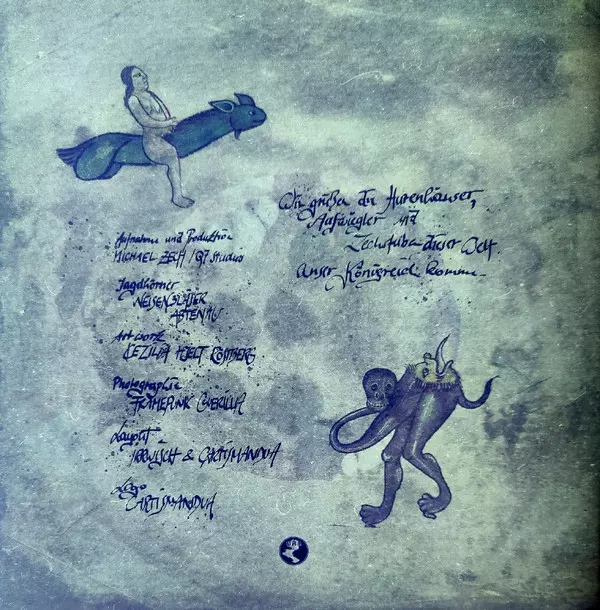 Wir grüßen die Hurenhäuser,
Aufwiegler und
Zechstuben dieser Welt.
Unser Königreich komme.
Aufnahme und Produktion
MICHAEL ZECH / Q7 Studios
Jagdhörner
ABTENAU
Artwork
HJELT
Photographie
FRAMEPUNK GUERILLA
Layout
IRRWISCH & CARTISMANDUA
Logo
CARTISMANDUA